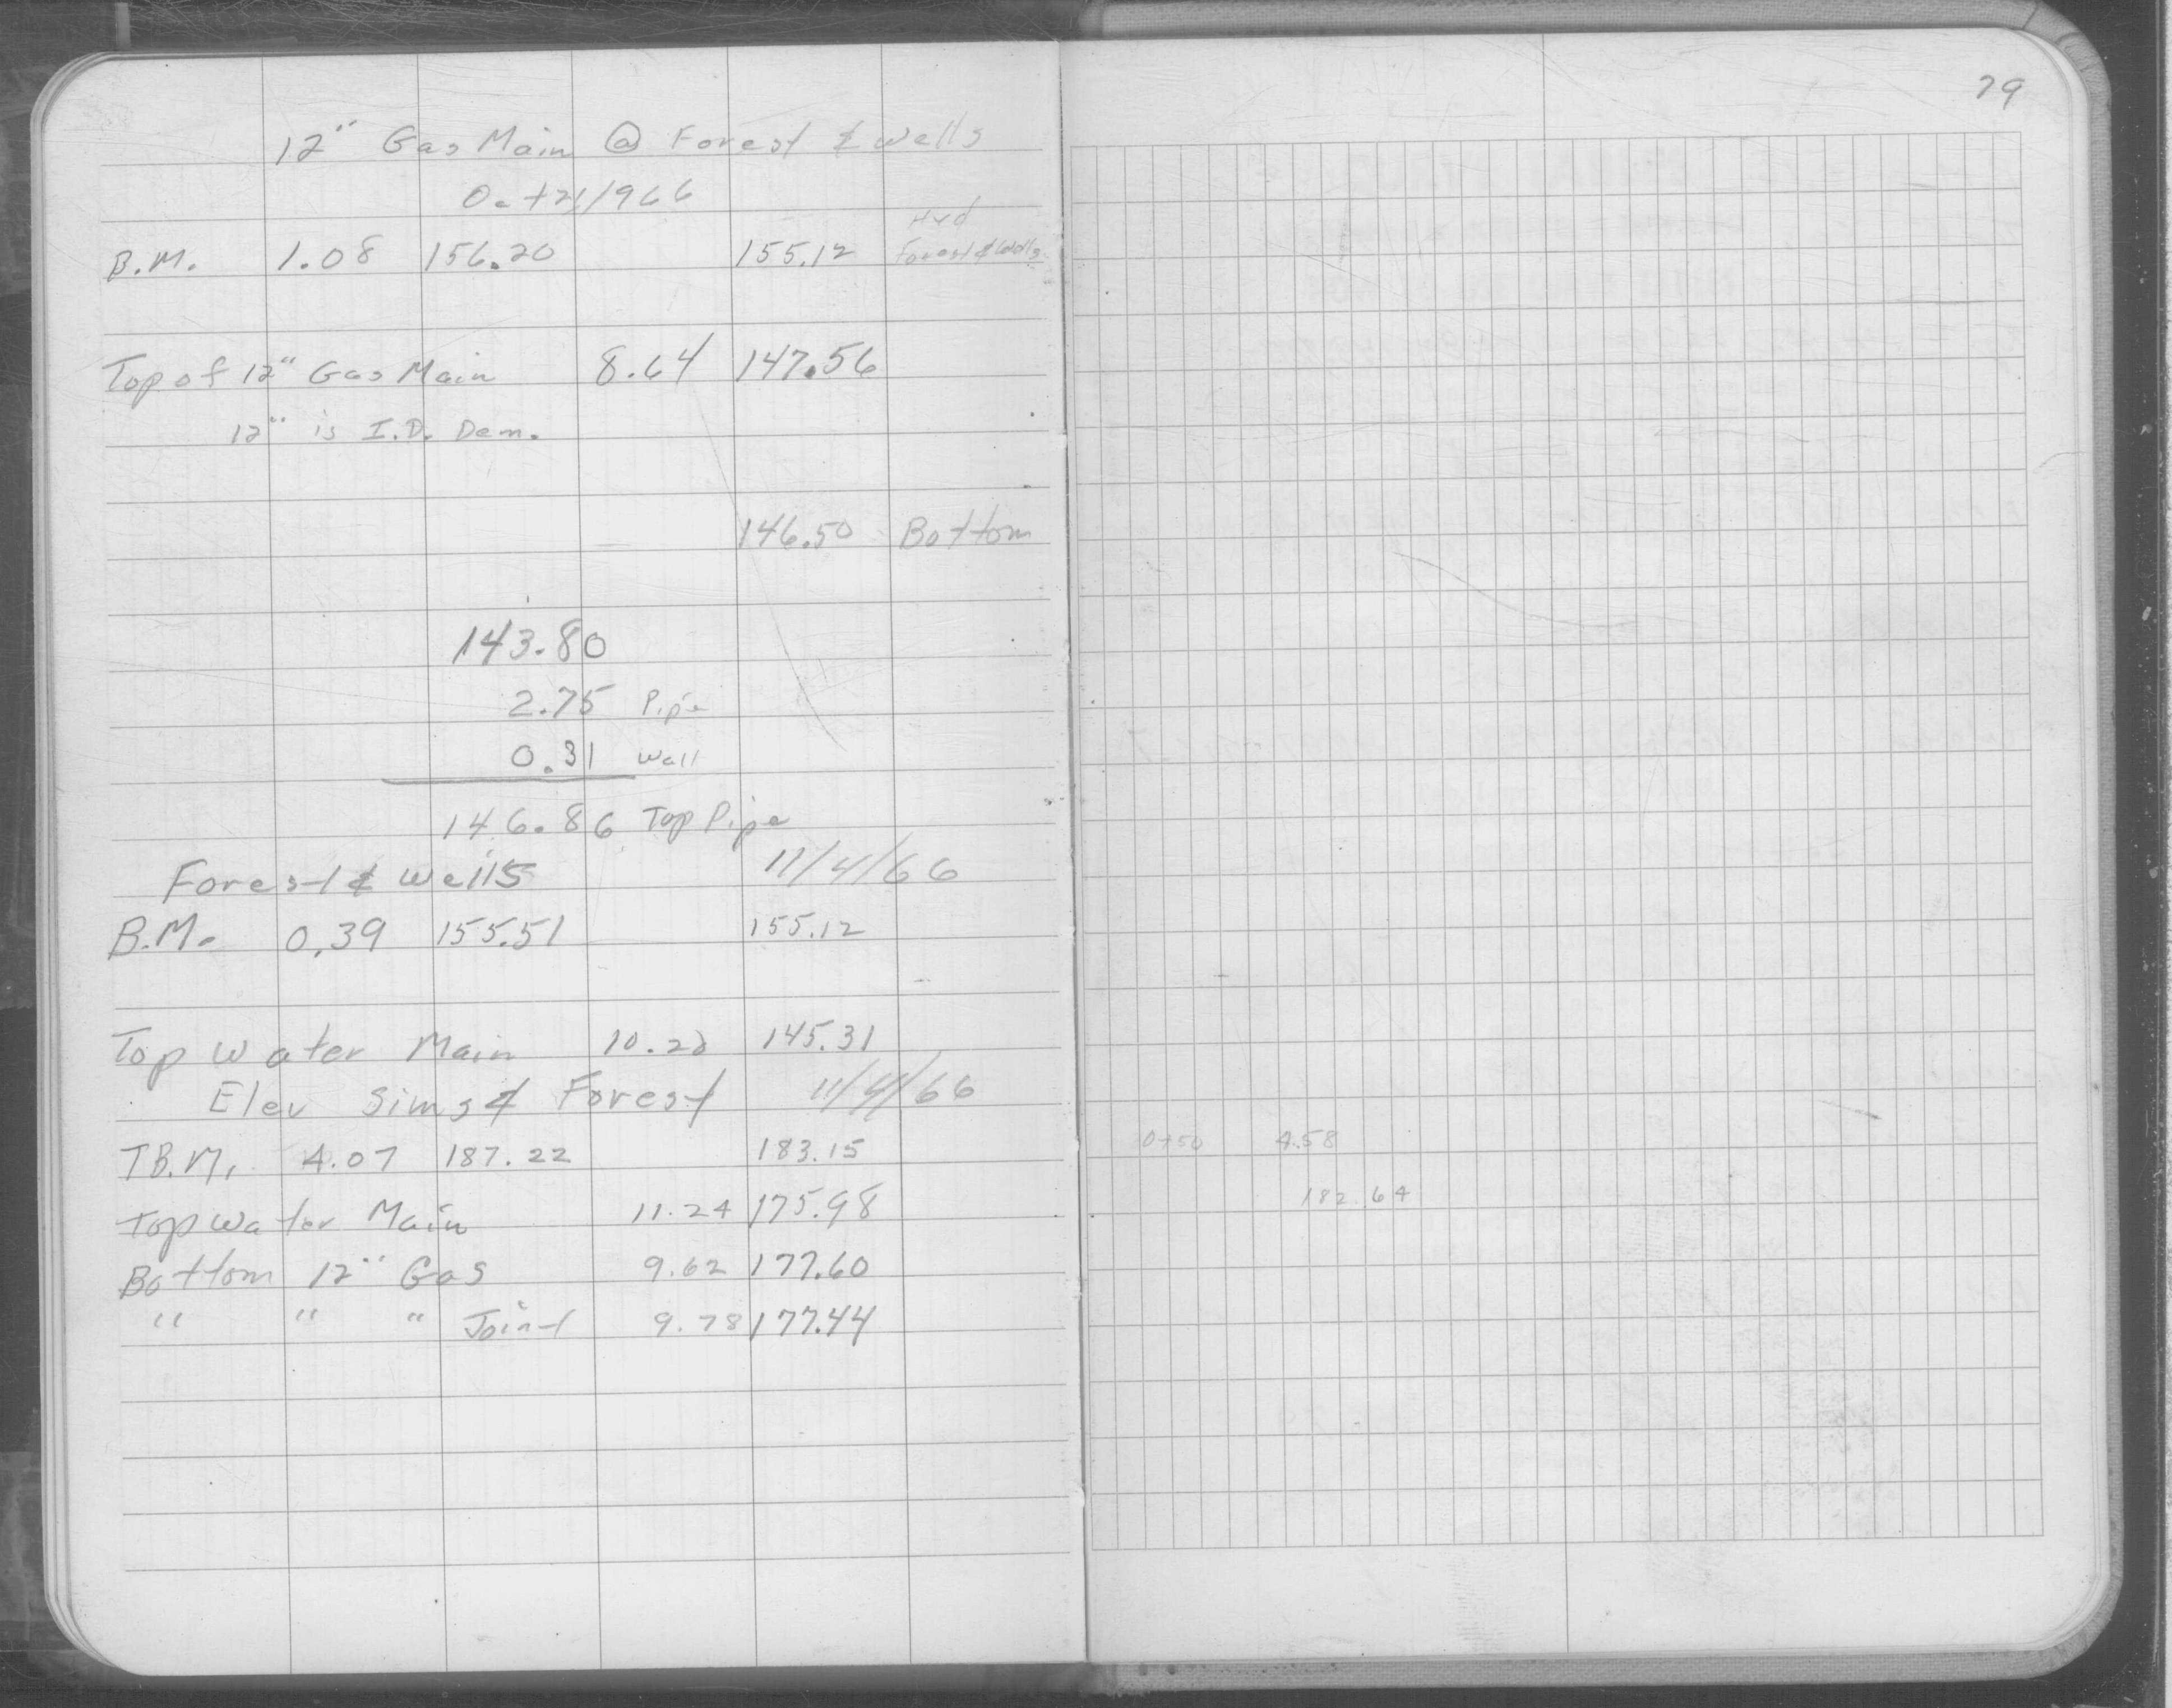 12" Gas Main @ Forest & Wells
Oct 21/1966
B.M. 1.08 156.20 155.12 Hyd Forest & Wells
Top of 12" Gas Main 8.64 147.56
12" is I.D. Dem.
146.50 Bottom
143.80
2.75 Pipe
0.31 Wall
146.86 Top Pipe
Forest & Wells 11/4/66
B.M. 0.39 155.51 155.12
Top Water Main 10.20 145.31
Elev Sims & Forest 11/4/66
T.B.M. 4.07 187.22 183.15
Top Water Main 11.24 175.98
Bottom 12" Gas 9.62 177.60
" " " Joint 9.78 177.44
79
0+50 4.58
182.64